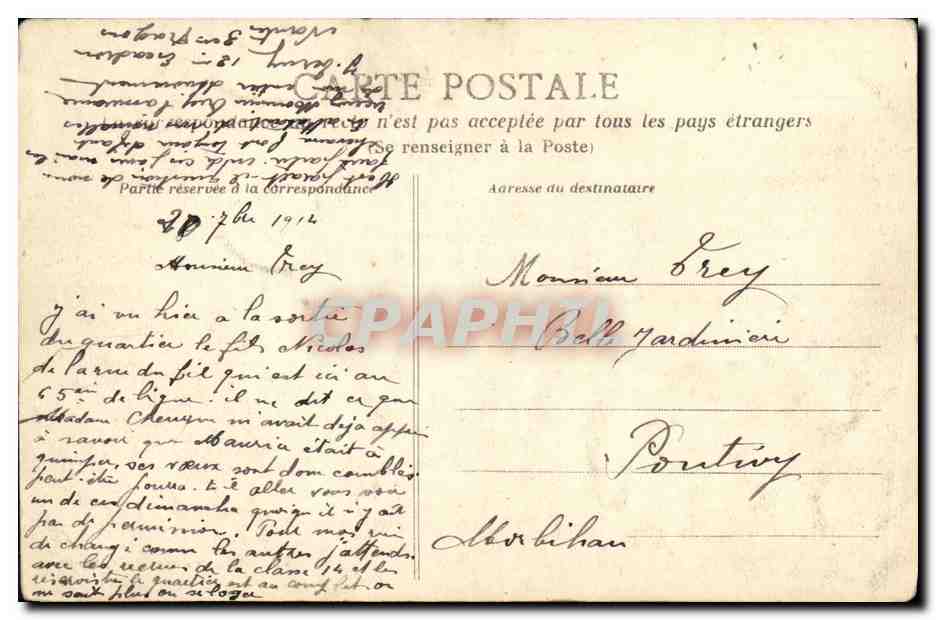 CARTE POSTALE
n'est pas acceptée par tous les pays étrangers
(Se renseigner à la Poste)
Partie réservée à la correspondance
Adresse du destinataire
7bre 1914
Monsieur Trey
j'ai vu hier à la sortie
du quartier le fils Nicolas
de la rue du fil qui est ici au
65ème de ligne. il me dit ce que
Madame m'avait déjà appris
à savoir que Maurice était à
quimper, ses vœux sont donc comblés
peut-être pourra-t-il aller vous voir
un de ces dimanches quoiqu'il n'y ait
pas de permission. Pour moi rien
de changé comme les autres j'attends
avec les recrues de la classe 14 et les
réservistes le quartier est au complet on
ne sait plus où se loger
Il est paraît-il question de nous
faire partir
toujours
entier dévouement
12e Escadron
3e Dragons
Nantes
Monsieur Trey
Belle Jardinière
Pontivy
Morbihan
CPAPHIL